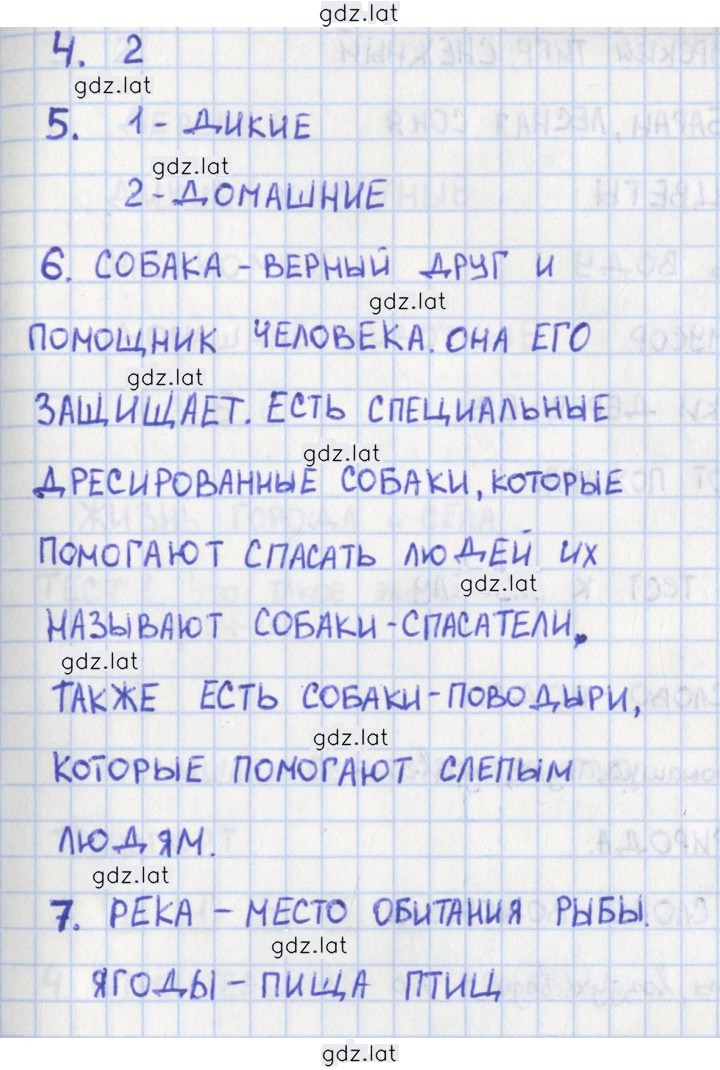 gdz.lat
4. 2
gdz.lat
5. 1 - ДИКИЕ
gdz.lat
2 - ДОМАШНИЕ
6. СОБАКА - ВЕРНЫЙ ДРУГ И
gdz.lat
ПОМОЩНИК ЧЕЛОВЕКА. ОНА ЕГО
gdz.lat
ЗАЩИЩАЕТ. ЕСТЬ СПЕЦИАЛЬНЫЕ
gdz.lat
ДРЕСИРОВАННЫЕ СОБАКИ, КОТОРЫЕ
ПОМОГАЮТ СПАСАТЬ ЛЮДЕЙ ИХ
gdz.lat
НАЗЫВАЮТ СОБАКИ-СПАСАТЕЛИ.
gdz.lat
ТАКЖЕ ЕСТЬ СОБАКИ-ПОВОДЫРИ,
gdz.lat
КОТОРЫЕ ПОМОГАЮТ СЛЕПЫМ
ЛЮДЯМ.
gdz.lat
7. РЕКА - МЕСТО ОБИТАНИЯ РЫБЫ.
gdz.lat
ЯГОДЫ - ПИЩА ПТИЦ
gdz.lat